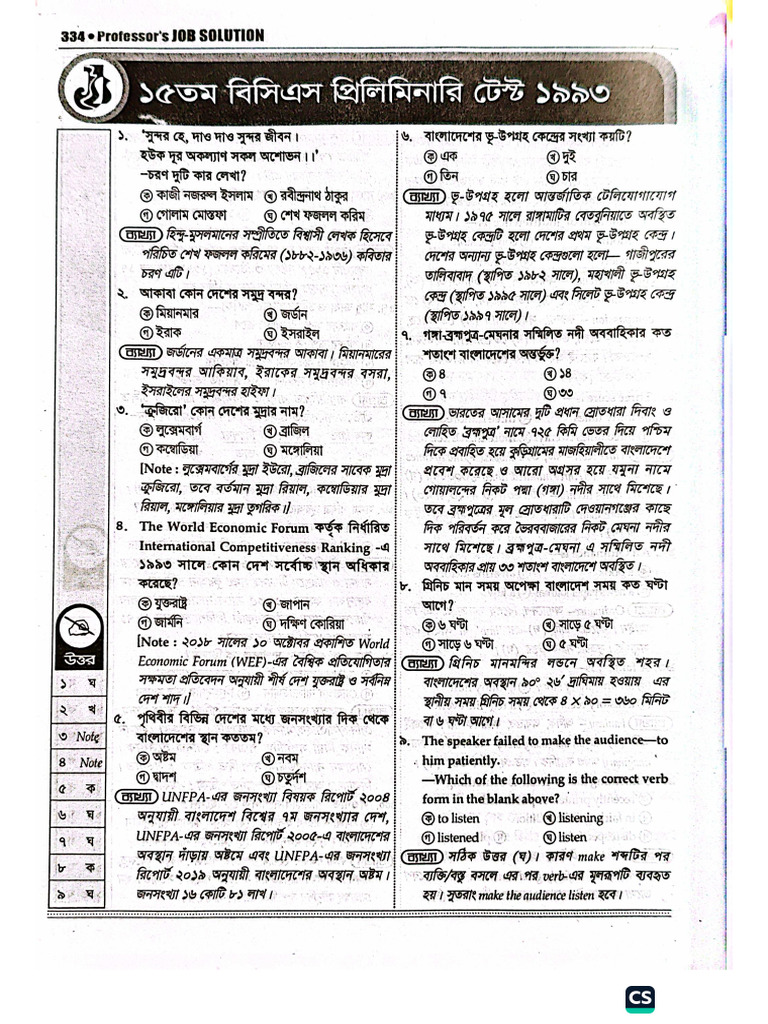 334 • Professor's JOB SOLUTION
১৫তম বিসিএস প্রিলিমিনারি টেস্ট ১৯৯৩
১. ‘সুন্দর হে, দাও দাও সুন্দর জীবন।
হউক দূর অকল্যাণ সকল অশোভন।।’
–চরণ দুটি কার লেখা?
ক কাজী নজরুল ইসলাম খ রবীন্দ্রনাথ ঠাকুর
গ গোলাম মোস্তফা ঘ শেখ ফজলল করিম
ব্যাখ্যা হিন্দু-মুসলমানের সম্প্রীতিতে বিশ্বাসী লেখক হিসেবে
পরিচিত শেখ ফজলল করিমের (১৮৮২-১৯৩৬) কবিতার
চরণ এটি।
২. আকাবা কোন দেশের সমুদ্র বন্দর?
ক মিয়ানমার খ জর্ডান
গ ইরাক ঘ ইসরাইল
ব্যাখ্যা জর্ডানের একমাত্র সমুদ্রবন্দর আকাবা। মিয়ানমারের
সমুদ্রবন্দর আকিয়াব, ইরাকের সমুদ্রবন্দর বসরা,
ইসরাইলের সমুদ্রবন্দর হাইফা।
৩. ‘ক্রুজিরো’ কোন দেশের মুদ্রার নাম?
ক লুক্সেমবার্গ খ ব্রাজিল
গ কম্বোডিয়া ঘ মঙ্গোলিয়া
[Note : লুক্সেমবার্গের মুদ্রা ইউরো, ব্রাজিলের সাবেক মুদ্রা
ক্রুজিরো, তবে বর্তমান মুদ্রা রিয়াল, কম্বোডিয়ার মুদ্রা
রিয়াল, মঙ্গোলিয়ার মুদ্রা তুগরিক।]
৪. The World Economic Forum কর্তৃক নির্ধারিত
International Competitiveness Ranking -এ
১৯৯৩ সালে কোন দেশ সর্বোচ্চ স্থান অধিকার
করেছে?
ক যুক্তরাষ্ট্র খ জাপান
গ জার্মনি ঘ দক্ষিণ কোরিয়া
[Note : ২০১৮ সালের ১০ অক্টোবর প্রকাশিত World
Economic Forum (WEF)-এর বৈশ্বিক প্রতিযোগিতার
সক্ষমতা প্রতিবেদন অনুযায়ী শীর্ষ দেশ যুক্তরাষ্ট্র ও সর্বনিম্ন
দেশ শাদ।]
৫. পৃথিবীর বিভিন্ন দেশের মধ্যে জনসংখ্যার দিক থেকে
বাংলাদেশের স্থান কততম?
ক অষ্টম খ নবম
গ দ্বাদশ ঘ চতুর্দশ
ব্যাখ্যা UNFPA-এর জনসংখ্যা বিষয়ক রিপোর্ট ২০০৪
অনুযায়ী বাংলাদেশ বিশ্বের ৭ম জনসংখ্যার দেশ,
UNFPA-এর জনসংখ্যা রিপোর্ট ২০০৫-এ বাংলাদেশের
অবস্থান দাঁড়ায় অষ্টমে এবং UNFPA-এর জনসংখ্যা
রিপোর্ট ২০১৯ অনুযায়ী বাংলাদেশের অবস্থান অষ্টম।
জনসংখ্যা ১৬ কোটি ৮১ লাখ।
৬. বাংলাদেশের ভূ-উপগ্রহ কেন্দ্রের সংখ্যা কয়টি?
ক এক খ দুই
গ তিন ঘ চার
ব্যাখ্যা ভূ-উপগ্রহ হলো আন্তর্জাতিক টেলিযোগাযোগ
মাধ্যম। ১৯৭৫ সালে রাঙ্গামাটির বেতবুনিয়াতে অবস্থিত
ভূ-উপগ্রহ কেন্দ্রটি হলো দেশের প্রথম ভূ-উপগ্রহ কেন্দ্র।
দেশের অন্যান্য ভূ-উপগ্রহ কেন্দ্রগুলো হলো— গাজীপুরের
তালিবাবাদ (স্থাপিত ১৯৮২ সালে), মহাখালী ভূ-উপগ্রহ
কেন্দ্র (স্থাপিত ১৯৯৫ সালে) এবং সিলেট ভূ-উপগ্রহ কেন্দ্র
(স্থাপিত ১৯৯৭ সালে)।
৭. গঙ্গা-ব্রহ্মপুত্র-মেঘনার সম্মিলিত নদী অববাহিকার কত
শতাংশ বাংলাদেশের অন্তর্ভুক্ত?
ক ৪ খ ১৪
গ ৭ ঘ ৩৩
ব্যাখ্যা ভারতের আসামের দুটি প্রধান স্রোতধারা দিবাং ও
লোহিত ‘ব্রহ্মপুত্র’ নামে ৭২৫ কিমি ভেতর দিয়ে পশ্চিম
দিকে প্রবাহিত হয়ে কুড়িগ্রামের মাজহিয়ালীতে বাংলাদেশে
প্রবেশ করেছে ও আরো অগ্রসর হয়ে যমুনা নামে
গোয়ালন্দের নিকট পদ্মা (গঙ্গা) নদীর সাথে মিশেছে।
তবে ব্রহ্মপুত্রের মূল স্রোতধারাটি দেওয়ানগঞ্জের কাছে
দিক পরিবর্তন করে ভৈরববাজারের নিকট মেঘনা নদীর
সাথে মিশেছে। ব্রহ্মপুত্র-মেঘনা এ সম্মিলিত নদী
অববাহিকার প্রায় ৩৩ শতাংশ বাংলাদেশে অবস্থিত।
৮. গ্রিনিচ মান সময় অপেক্ষা বাংলাদেশ সময় কত ঘণ্টা
আগে?
ক ৬ ঘণ্টা খ সাড়ে ৫ ঘণ্টা
গ সাড়ে ৬ ঘণ্টা ঘ ৫ ঘণ্টা
ব্যাখ্যা গ্রিনিচ মানমন্দির লন্ডনে অবস্থিত শহর।
বাংলাদেশের অবস্থান ৯০° ২৬′ দ্রাঘিমায় হওয়ায় এর
স্থানীয় সময় গ্রিনিচ সময় থেকে ৪ × ৯০ = ৩৬০ মিনিট
বা ৬ ঘণ্টা আগে।
৯. The speaker failed to make the audience—to
him patiently.
—Which of the following is the correct verb
form in the blank above?
ক to listen খ listening
গ listened ঘ listen
ব্যাখ্যা সঠিক উত্তর (ঘ)। কারণ make শব্দটির পর
ব্যক্তি/বস্তু বসলে এর পর verb-এর মূলরূপটি ব্যবহৃত
হয়। সুতরাং make the audience listen হবে।
উত্তর
১ ঘ
২ খ
৩ Note
৪ Note
৫ ক
৬ ঘ
৭ ঘ
৮ ক
৯ ঘ
CS